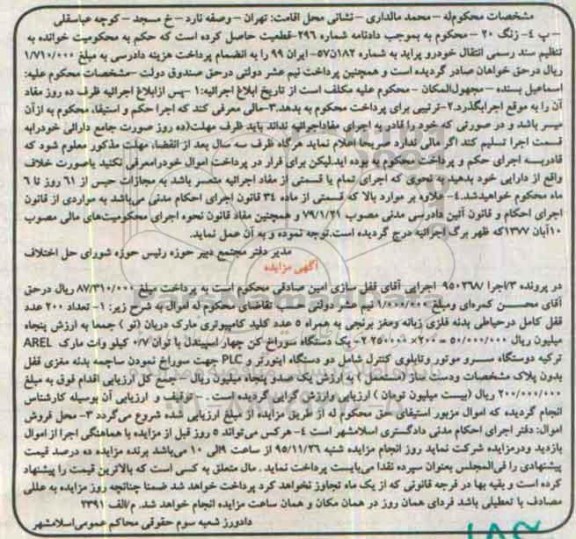 مشخصات محکوم‌له - محمد مالداری - نشانی محل اقامت: تهران - وصفه نارد - خ مسجد - کوچه عباسقلی
- پ ٤- زنگ ٢٠ - محکوم به بموجب دادنامه شماره ٢٩٦-قطعیت حاصل کرده است که حکم به محکومیت خوانده به
تنظیم سند رسمی انتقال خودرو پراید به شماره ٥٧-١٨٢ن - ایران ٩٩ را به انضمام پرداخت هزینه دادرسی به مبلغ ١/٧١٠/٠٠٠
ریال درحق خواهان صادر گردیده است و همچنین پرداخت نیم عشر دولتی درحق صندوق دولت -مشخصات محکوم علیه:
اسماعیل بسنده - مجهول‌المکان - محکوم علیه مکلف است از تاریخ ابلاغ اجرائیه: ١- پس ازابلاغ اجرائیه ظرف ده روز مفاد
آن را به موقع اجرابگذرد.٢-ترتیبی برای پرداخت محکوم به بدهد.٣-مالی معرفی کند که اجرا حکم و استیفاء محکوم به ازآن
میسر باشد و در صورتی که خود را قادر به اجرای مفاداجرائیه نداند باید ظرف مهلت(ده روز صورت جامع دارائی خودرابه
قسمت اجرا تسلیم کند اگر مالی ندارد صریحا اعلام نماید هرگاه ظرف سه سال بعد از انقضاء مهلت مذکور معلوم شود که
قادربه اجرای حکم و پرداخت محکوم به بوده اید.لیکن برای فرار در پرداخت اموال خودرامعرفی نکنید یاصورت خلاف
واقع از دارایی خود بدهید به نحوی که اجرای تمام یا قسمتی از مفاد اجرائیه متعسر باشد به مجازات حبس از ٦١ روز تا ٦
ماه محکوم خواهیدشد.٤- علاوه بر موارد بالا که قسمتی از ماده ٣٤ قانون اجرای احکام مدنی می‌باشد به مواردی از قانون
اجرای احکام و قانون آئین دادرسی مدنی مصوب ٧٩/١/٢١ و همچنین مفاد قانون نحوه اجرای محکومیت‌های مالی مصوب
١٠آبان ١٣٧٧که ظهر برگ اجرائیه درج گردیده است.توجه نموده و به آن عمل نماید.
مدیر دفتر مجتمع دبیر حوزه رئیس حوزه شورای حل اختلاف
آگهی مزایده
در پرونده ٣/اجرا ٩٥٠٢٦٨٧ اجرایی آقای قفل سازی امین صادقی محکوم است به پرداخت مبلغ ٨٧/٣١٠/٠٠٠ ریال درحق
آقای محسن کمره‌ای ومبلغ ٩/٠٠٠/٠٠٠ نیم عشر دولتی حسب تقاضای محکوم له اموال به شرح زیر: ١- تعداد ٢٠٠ عدد
قفل کامل درحیاطی بدنه فلزی زبانه ومغز برنجی به همراه ٥ عدد کلید کامپیوتری مارک دربان (نو) جمعا به ارزش پنجاه
میلیون ریال ٥٠/٠٠٠/٠٠٠ = ٢٠٠× ٢٥٠٠٠٠ ٢- یک دستگاه سوراخ کن چهار اسپیندل با توان ٠/٧ کیلو وات مارک AREL
ترکیه دودستگاه سرو موتور وتابلوی کنترل شامل دو دستگاه اینورتر و PLC جهت سوراخ نمودن ساچمه بدنه مغزی قفل
بدون پلاک مشخصات ودست ساز (مستعمل) به ارزش یک صدو پنجاه میلیون ریال - جمع کل ارزیابی اقدام فوق به مبلغ
٢٠٠/٠٠٠/٠٠٠ ریال (بیست میلیون تومان) ارزیابی وارزش گرایی گردیده است. - توقیف و ارزیابی آن بوسیله کارشناس
انجام گردیده که اموال مزبور استیفای حق محکوم له از طریق مزایده از مبلغ ارزیابی شده شروع می‌گردد ٣- محل فروش
اموال: دفتر اجرای احکام مدنی دادگستری اسلامشهر است ٤- هرکس می‌تواند ٥ روز قبل از مزایده با هماهنگی اجرا از اموال
بازدید ودرمزایده شرکت نماید روز انجام مزایده شنبه ٩٥/١١/٢٦ از ساعت ٩الی ١٠ می‌باشد برنده مزایده ده درصد قیمت
پیشنهادی را فی‌المجلس بعنوان سپرده نقدا می‌بایست پرداخت نماید . مال متعلق به کسی است که بالاترین قیمت را پیشنهاد
کرده است و بقیه بها در فرجه قانونی که از یک ماه تجاوز نخواهد کرد پرداخت خواهد شد ضمنا چنانچه روز مزایده به عللی
مصادف با تعطیلی باشد فردای همان روز در همان مکان و همان ساعت مزایده انجام خواهد شد. م/الف ٢٣٩١
دادورز شعبه سوم حقوقی محاکم عمومی‌اسلامشهر